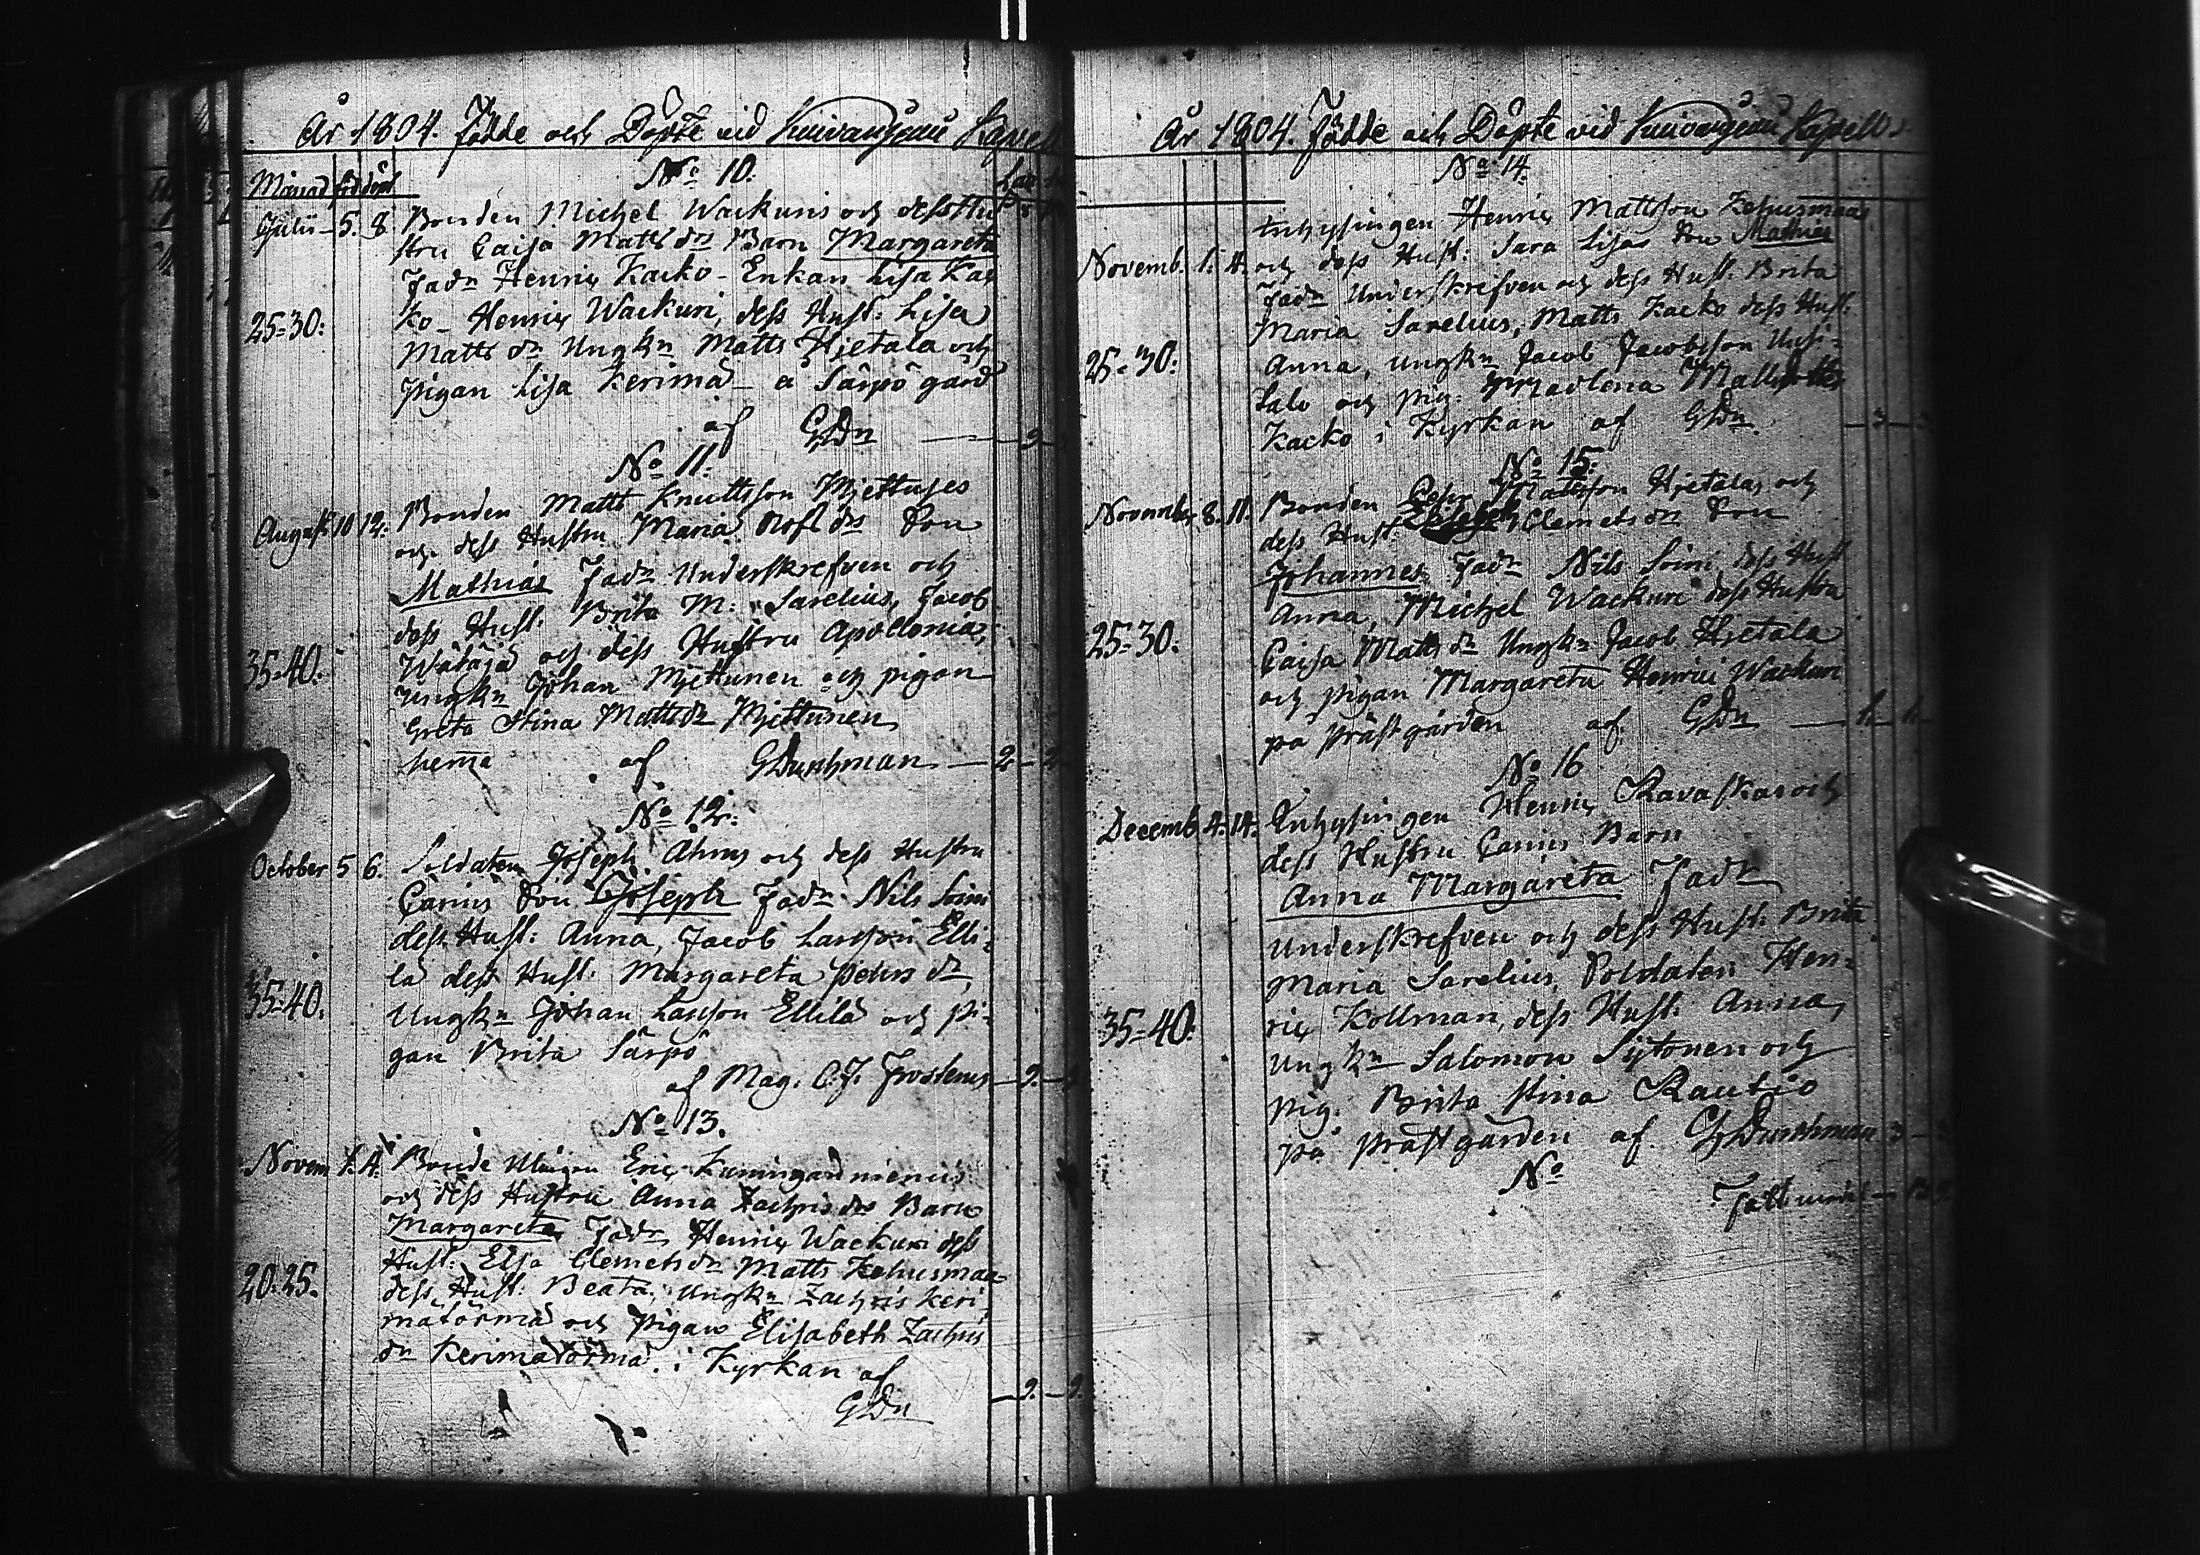 År 1804. Födde och Döpte vid Kuivaniemi Kapell
Månad föd döpt
No 10.
Julii 5. 8. Bonden Michel Wackuris och dess Hu
stru Caisa Matts dr Barn Margareta
Fadr Henric Kacko - Enkan Lisa Kac
ko - Henric Wackuri, dess Hust: Lisa
25-30:
Matts dr Ungkn Matts Hjetala och
pigan Lisa Kerimä å Särpö gård
af GDn
No 11.
August 10 12. Bonden Matts Knuttsson Mjettuses
och dess Hustru Maria Olofs dr Son
Mathias Fadr Underskrefven och
dess Hust: Brita M: Sarelius, Jacob
och dess Hustru Apollonia,
35-40.
Ungkn Johan Mjettunen och pigan
Greta Stina Matts dr Mjettunen
hema af GDurchman 2 - 2
No 12.
October 5 6. Soldaten Joseph Ahms och dess Hustru
Carins Son Joseph Fadr Nils Soini
dess Hust: Anna, Jacob Larsson Elli-
lä dess Hust: Margareta Pehrs dr,
35-40.
Ungkn Johan Larsson Ellilä och pi-
gan Brita Särpö
af Mag. C. J. Frosterus 2
No 13.
Novem 1. 4. Bonde Eric
och dess Hustru Anna Zachris drs Barn
Margareta, Fadr Henric Wackuri dess
Hust: Elsa Clemets dr Matts Kehusmaa
20-25.
dess Hust: Beata, Ungkn Zachris Keri
mätörmä och pigan Elisabeth Zachris
dr Kerimätörmä. i Kyrkan af
GDn 2. - 2.
År 1804. Födde och Döpte vid Kuivaniemi Kapell
No 14.
Inhysingen Henric Mattsson Kehusmaas
Novemb. 1. 4. och dess Hust: Sara Lisas Son Mathias
Fadr Underskrefven och dess Hust: Brita
Maria Sarelius, Matts Kacko dess Hust:
25-30:
Anna, Ungkn Jacob Jacobsson Uusi-
talo och pig: Madlena Matts
Kacko i Kyrkan af GDn 3 - 3
No 15:
November 8. 11. Bonden Pehr Mattsson Hjetalas och
dess Hust: Clemets dr Son
Johannes, Fadr Nils Soini, dess Hust
Anna, Michel Wackuri dess Hustru
25-30.
Caisa Matts dr Ungkn Jacob Hjetala
och pigan Margareta Henrici Wackuri
på prästgården af GDn 1 - 1
No 16
Decemb. 4. 14. Inhysingen Henric Ravaskas och
dess Hustru Carins Barn
Anna Margareta Fadr
Underskrefven och dess Hust: Brita
Maria Sarelius, Soldaten Hen-
35-40.
ric Kollman, dess Hust: Anna,
Ungkn Salomon Sytonen och
pig. Brita Stina Rautio
på prästgården af GDurchman 3 - 3
No